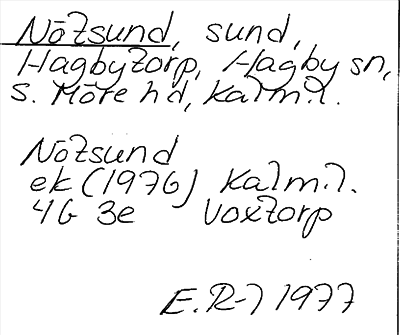 Nötsund, sund,
Hagbytorp, Hagby sn,
S. Möre hd, Kalm.l.
Nötsund
ek (1976) Kalm.l.
4G 3e Voxtorp
E.R-) 1977